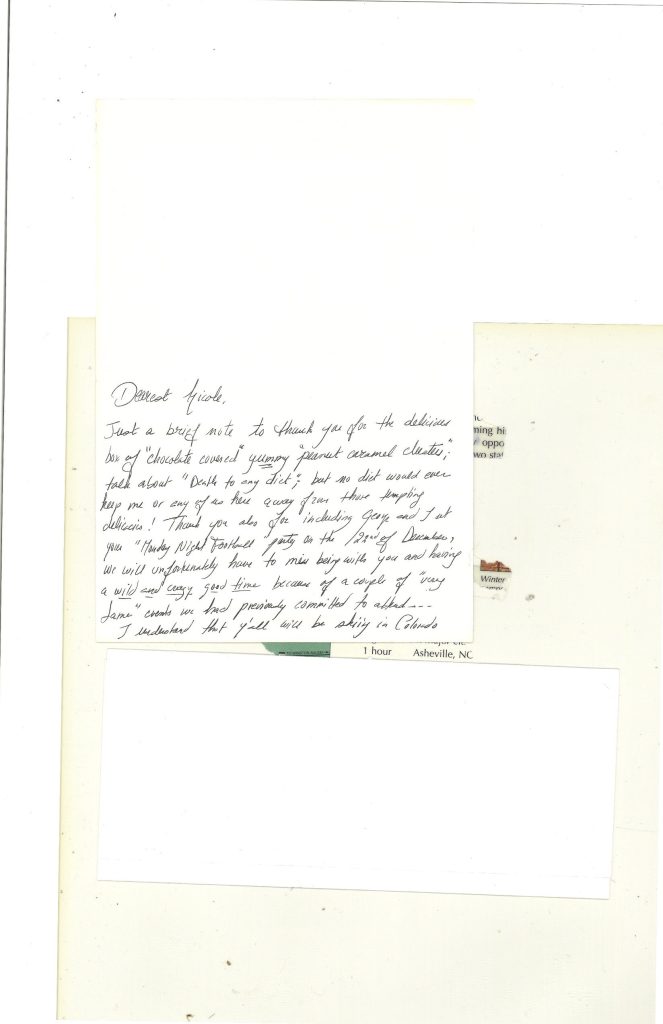 Dearest Nicole,
Just a brief note to thank you for the delicious
box of "chocolate covered" yummy "peanut caramel clusters";
talk about "Death to any diet"; but no diet would ever
keep me or any of us here away from those tempting
delicacies! Thank you also for including George and I at
your "Monday Night Football" party on the 22nd of December,
we will unfortunately have to miss being with you and having
a wild and crazy good time because of a couple of "very
lame" events we had previously committed to attend---
I understand that y'all will be skiing in Colorado
ming hi
oppo
wo sta
Winter
major
1 hour Asheville, NC